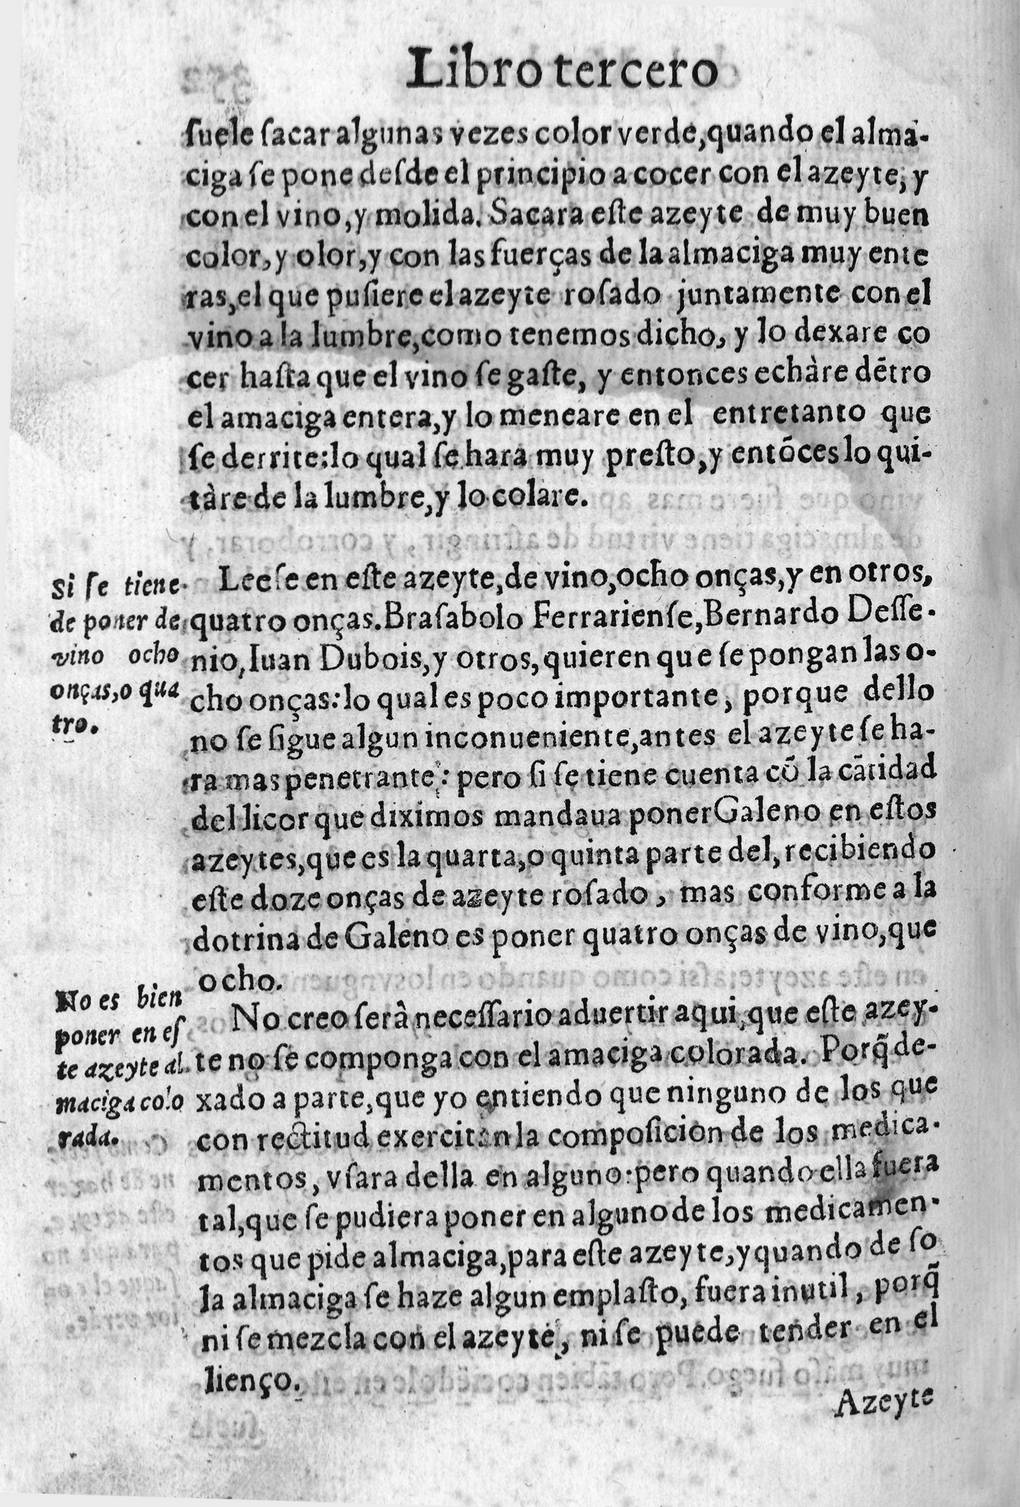 Libro tercero
ſuele ſacar algunas vezes color verde, quando el alma-
ciga ſe pone deſde el principio a cocer con el azeyte, y
con el vino, y molida. Sacara eſte azeyte de muy buen
color, y olor, y con las fuerças de la almaciga muy ente
ras, el que puſiere el azeyte roſado juntamente con el
vino a la lumbre, como tenemos dicho, y lo dexare co
cer haſta que el vino ſe gaſte, y entonces echàre dẽtro
el amaciga entera, y lo meneare en el entretanto que
ſe derrite: lo qual ſe harà muy preſto, y entõces lo qui-
tàre de la lumbre, y lo colare.
Si ſe tiene
de poner de
vino ocho
onças, o qua
tro.
Leeſe en eſte azeyte, de vino, ocho onças, y en otros,
quatro onças. Braſabolo Ferrarienſe, Bernardo Deſſe-
nio, Iuan Dubois, y otros, quieren que ſe pongan las o-
cho onças: lo qual es poco importante, porque dello
no ſe ſigue algun inconueniente, antes el azeyte ſe ha-
ra mas penetrante: pero ſi ſe tiene cuenta cõ la cãtidad
del licor que diximos mandaua poner Galeno en eſtos
azeytes, que es la quarta, o quinta parte del, recibiendo
eſte doze onças de azeyte roſado, mas conforme a la
dotrina de Galeno es poner quatro onças de vino, que
ocho.
No es bien
poner en eſ
te azeyte al
maciga colo
rada.
No creo ſerà neceſſario aduertir aqui, que eſte azey-
te no ſe componga con el amaciga colorada. Porq̃ de-
xado a parte, que yo entiendo que ninguno de los que
con rectitud exercitan la compoſicion de los medica-
mentos, vſara della en alguno: pero quando ella fuera
tal, que ſe pudiera poner en alguno de los medicamen-
tos que pide almaciga, para eſte azeyte, y quando de ſo
la almaciga ſe haze algun emplaſto, fuera inutil, porq̃
ni ſe mezcla con el azeyte, ni ſe puede tender en el
lienço.
Azeyte